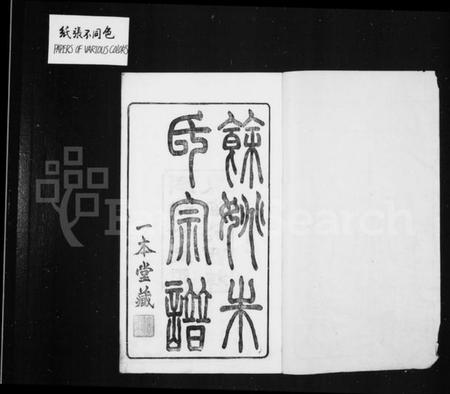 紙張不同色
PAPERS OF VARIOUS COLORS
餘姚朱
氏宗譜
一本堂藏
FamilySearch